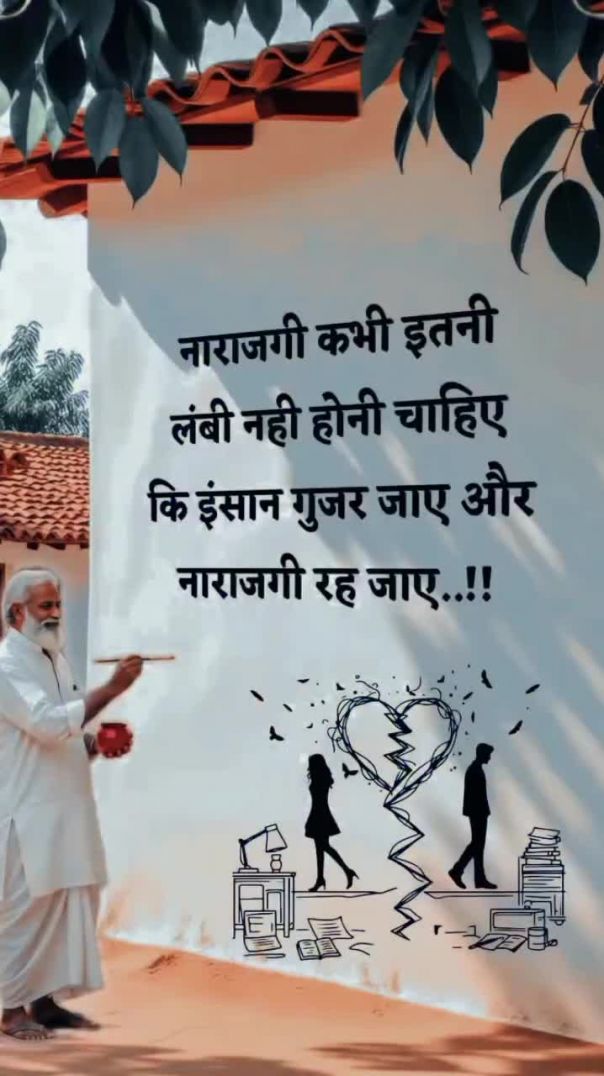 नाराजगी कभी इतनी
लंबी नही होनी चाहिए
कि इंसान गुजर जाए और
नाराजगी रह जाए..!!